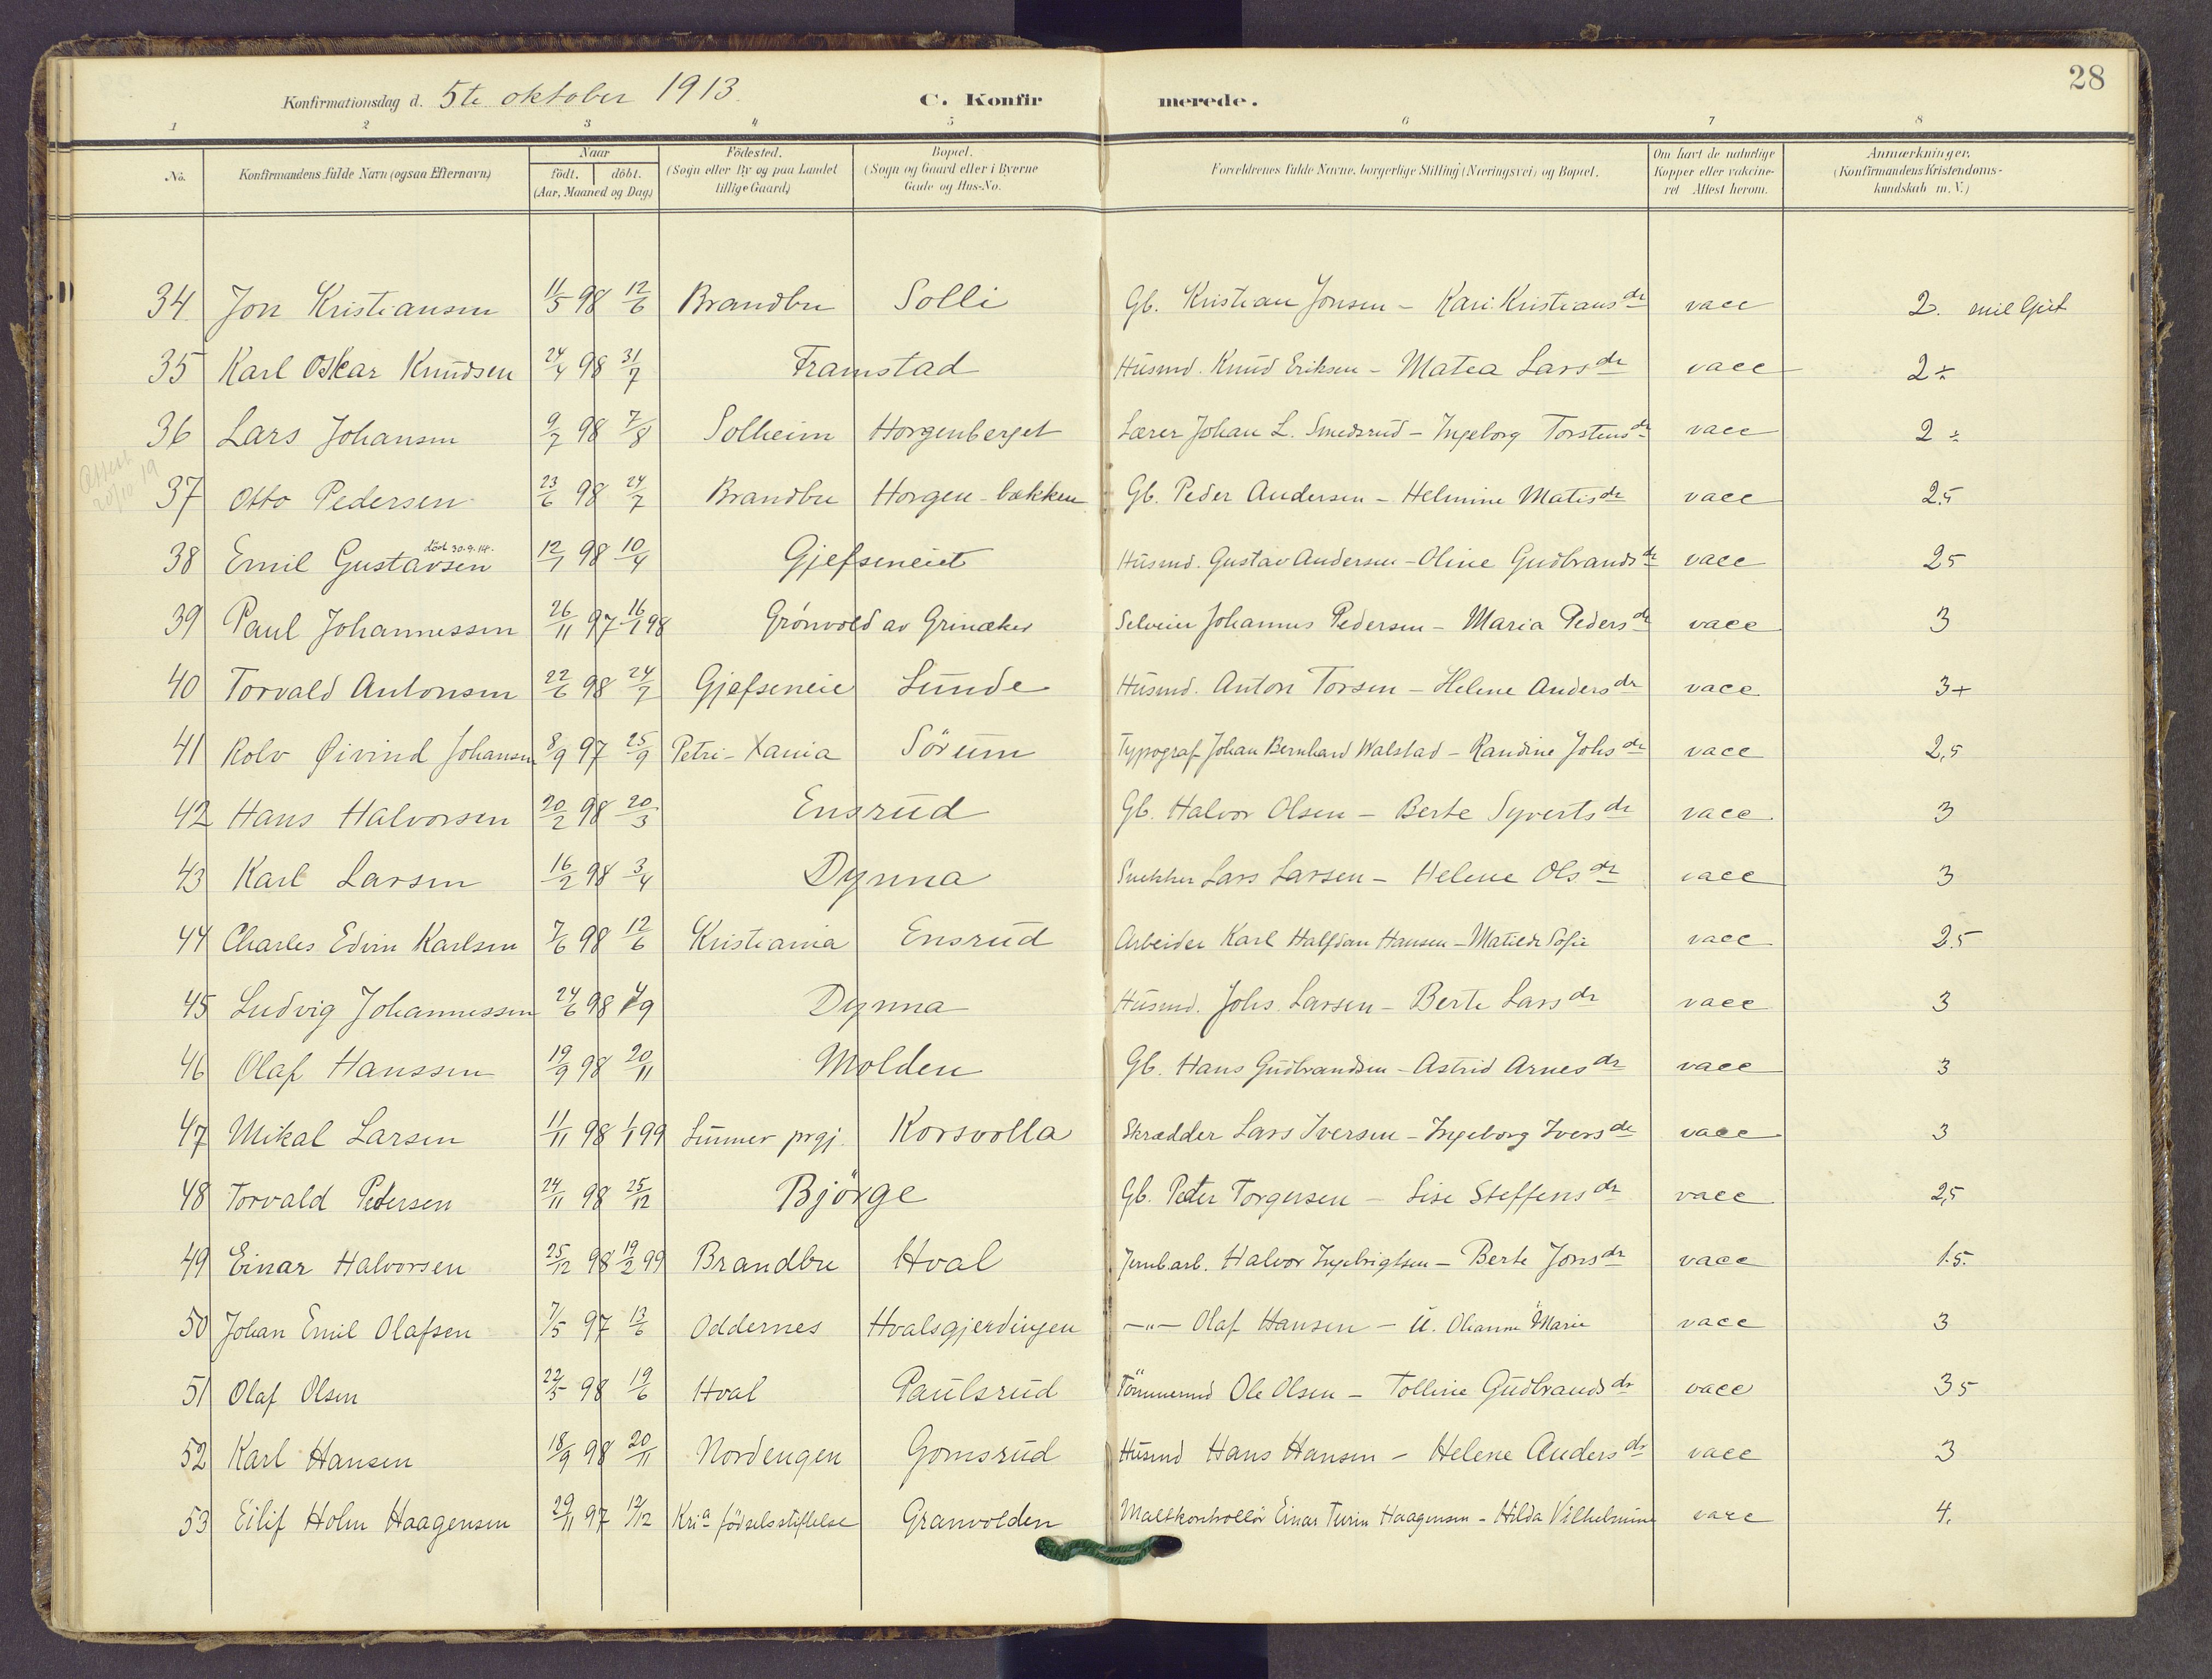 28
Konfirmationsdag d. 5te oktober 1913. C. Konfirmerede.
1 2 3 4 5 6 7 8
No. Konfirmandens fulde Navn (ogsaa Efternavn) Naar født. døbt. (Aar, Maaned og Dag) Födested. (Sogn eller By og paa Landet tillige Gaard) Bopæl. (Sogn og Gaard eller i Byerne Gade og Hus-No. Forældrenes fulde Navne, borgerlige Stilling (Næringsvei) og Bopæl. Om havt de naturlige Kopper eller vakcineret Attest herom. Anmærkninger. (Konfirmandens Kristendomskundskab m. V.)
34 Jon Kristiansen 11/5 98 12/6 Brandbu Solli Gb. Kristian Jonsen - Kari Kristiansdr vacc 2.
35 Karl Oskar Knudsen 24/4 98 31/7 Framstad Husmd. Knud Eriksen - Matea Larsdr vacc 2÷
36 Lars Johansen 9/7 98 7/8 Solheim Horgenberget Lærer Johan L. Smedsrud - Ingeborg Torstensdr vacc 2÷
Attest 20/10 19
37 Otto Pedersen 23/6 98 24/7 Brandbu Horgen-bækken Gb. Peder Andersen - Helmine Matisdr vacc 2.5
38 Emil Gustavsen død 30.9.14. 12/1 98 10/4 Gjefseneiet Husmd. Gustav Andersen - Oline Gudbrandsdr vacc 25
39 Paul Johannessen 26/11 97 16/1 98 Grønvold av Grinaker Selveier Johannes Pedersen - Maria Pedersdr vacc 3
40 Torvald Antonsen 22/6 98 24/7 Gjefseneie Lunde Husmd. Anton Torsen - Helene Andersdr vacc 3+
41 Rolv Øivind Johansen 8/9 97 25/9 Petri-Xania Sörum Typograf Johan Bernhard Walstad - Randine Johsdr vacc 2,5
42 Hans Halvorsen 20/2 98 20/3 Ensrud Gb. Halvor Olsen - Berte Syvertsdr vacc 3
43 Karl Larsen 16/2 98 3/4 Dynna Snekker Lars Larsen - Helene Olsdr vacc 3
44 Charles Edvin Karlsen 7/6 98 12/6 Kristiania Ensrud Arbeider Karl Halfdan Hansen - Matilde Sofie vacc 2.5
45 Ludvig Johannessen 24/6 98 4/9 Dynna Husmd. Johs. Larsen - Berte Larsdr vacc 3
46 Olaf Hanssen 19/9 98 20/11 Molden Gb. Hans Gudbrandsen - Astrid Arnesdr vacc 3
47 Mikal Larsen 11/11 98 1/1 99 Lunner prgj. Korsvolla Skrædder Lars Iversen - Ingeborg Iversdr vacc 3
48 Torvald Petersen 24/11 98 25/12 Björge Gb. Peter Torgersen - Lise Steffensdr vacc 2,5
49 Einar Halvorsen 25/12 98 19/2 99 Brandbu Hval Jernb.arb. Halvor Ingebrigtsen - Berte Jonsdr vacc 1.5.
50 Johan Emil Olafsen 7/5 97 13/6 Oddernes Hvalsgjerdingen —"— Olaf Hansen - u. Olianne Marie vacc 3
51 Olaf Olsen 22/5 98 19/6 Hval Paulsrud Tömmermd Ole Olsen - Tolline Gudbrandsdr vacc 35
52 Karl Hansen 18/9 98 20/11 Nordengen Gomsrud Husmd Hans Hansen - Helene Andersdr vacc 3
53 Eilif Holm Haagensen 29/11 97 12/12 Kria födselsstiftelse Granvolden Maltkontrollör Einar Turin Haagensen - Hilda Vilhelmine vacc 4.